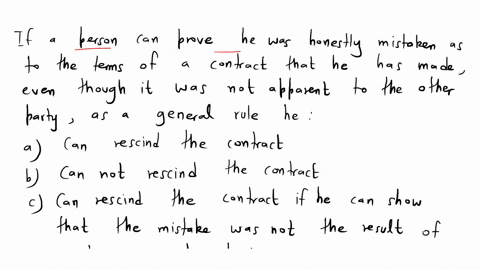 If a person can prove he was honestly mistaken as
to the terms of a contract that he has made,
even though it was not apparent to the other
party, as a general rule he:
a) can rescind the contract
b) can not rescind the contract
c) can rescind the contract if he can show
that the mistake was not the result of